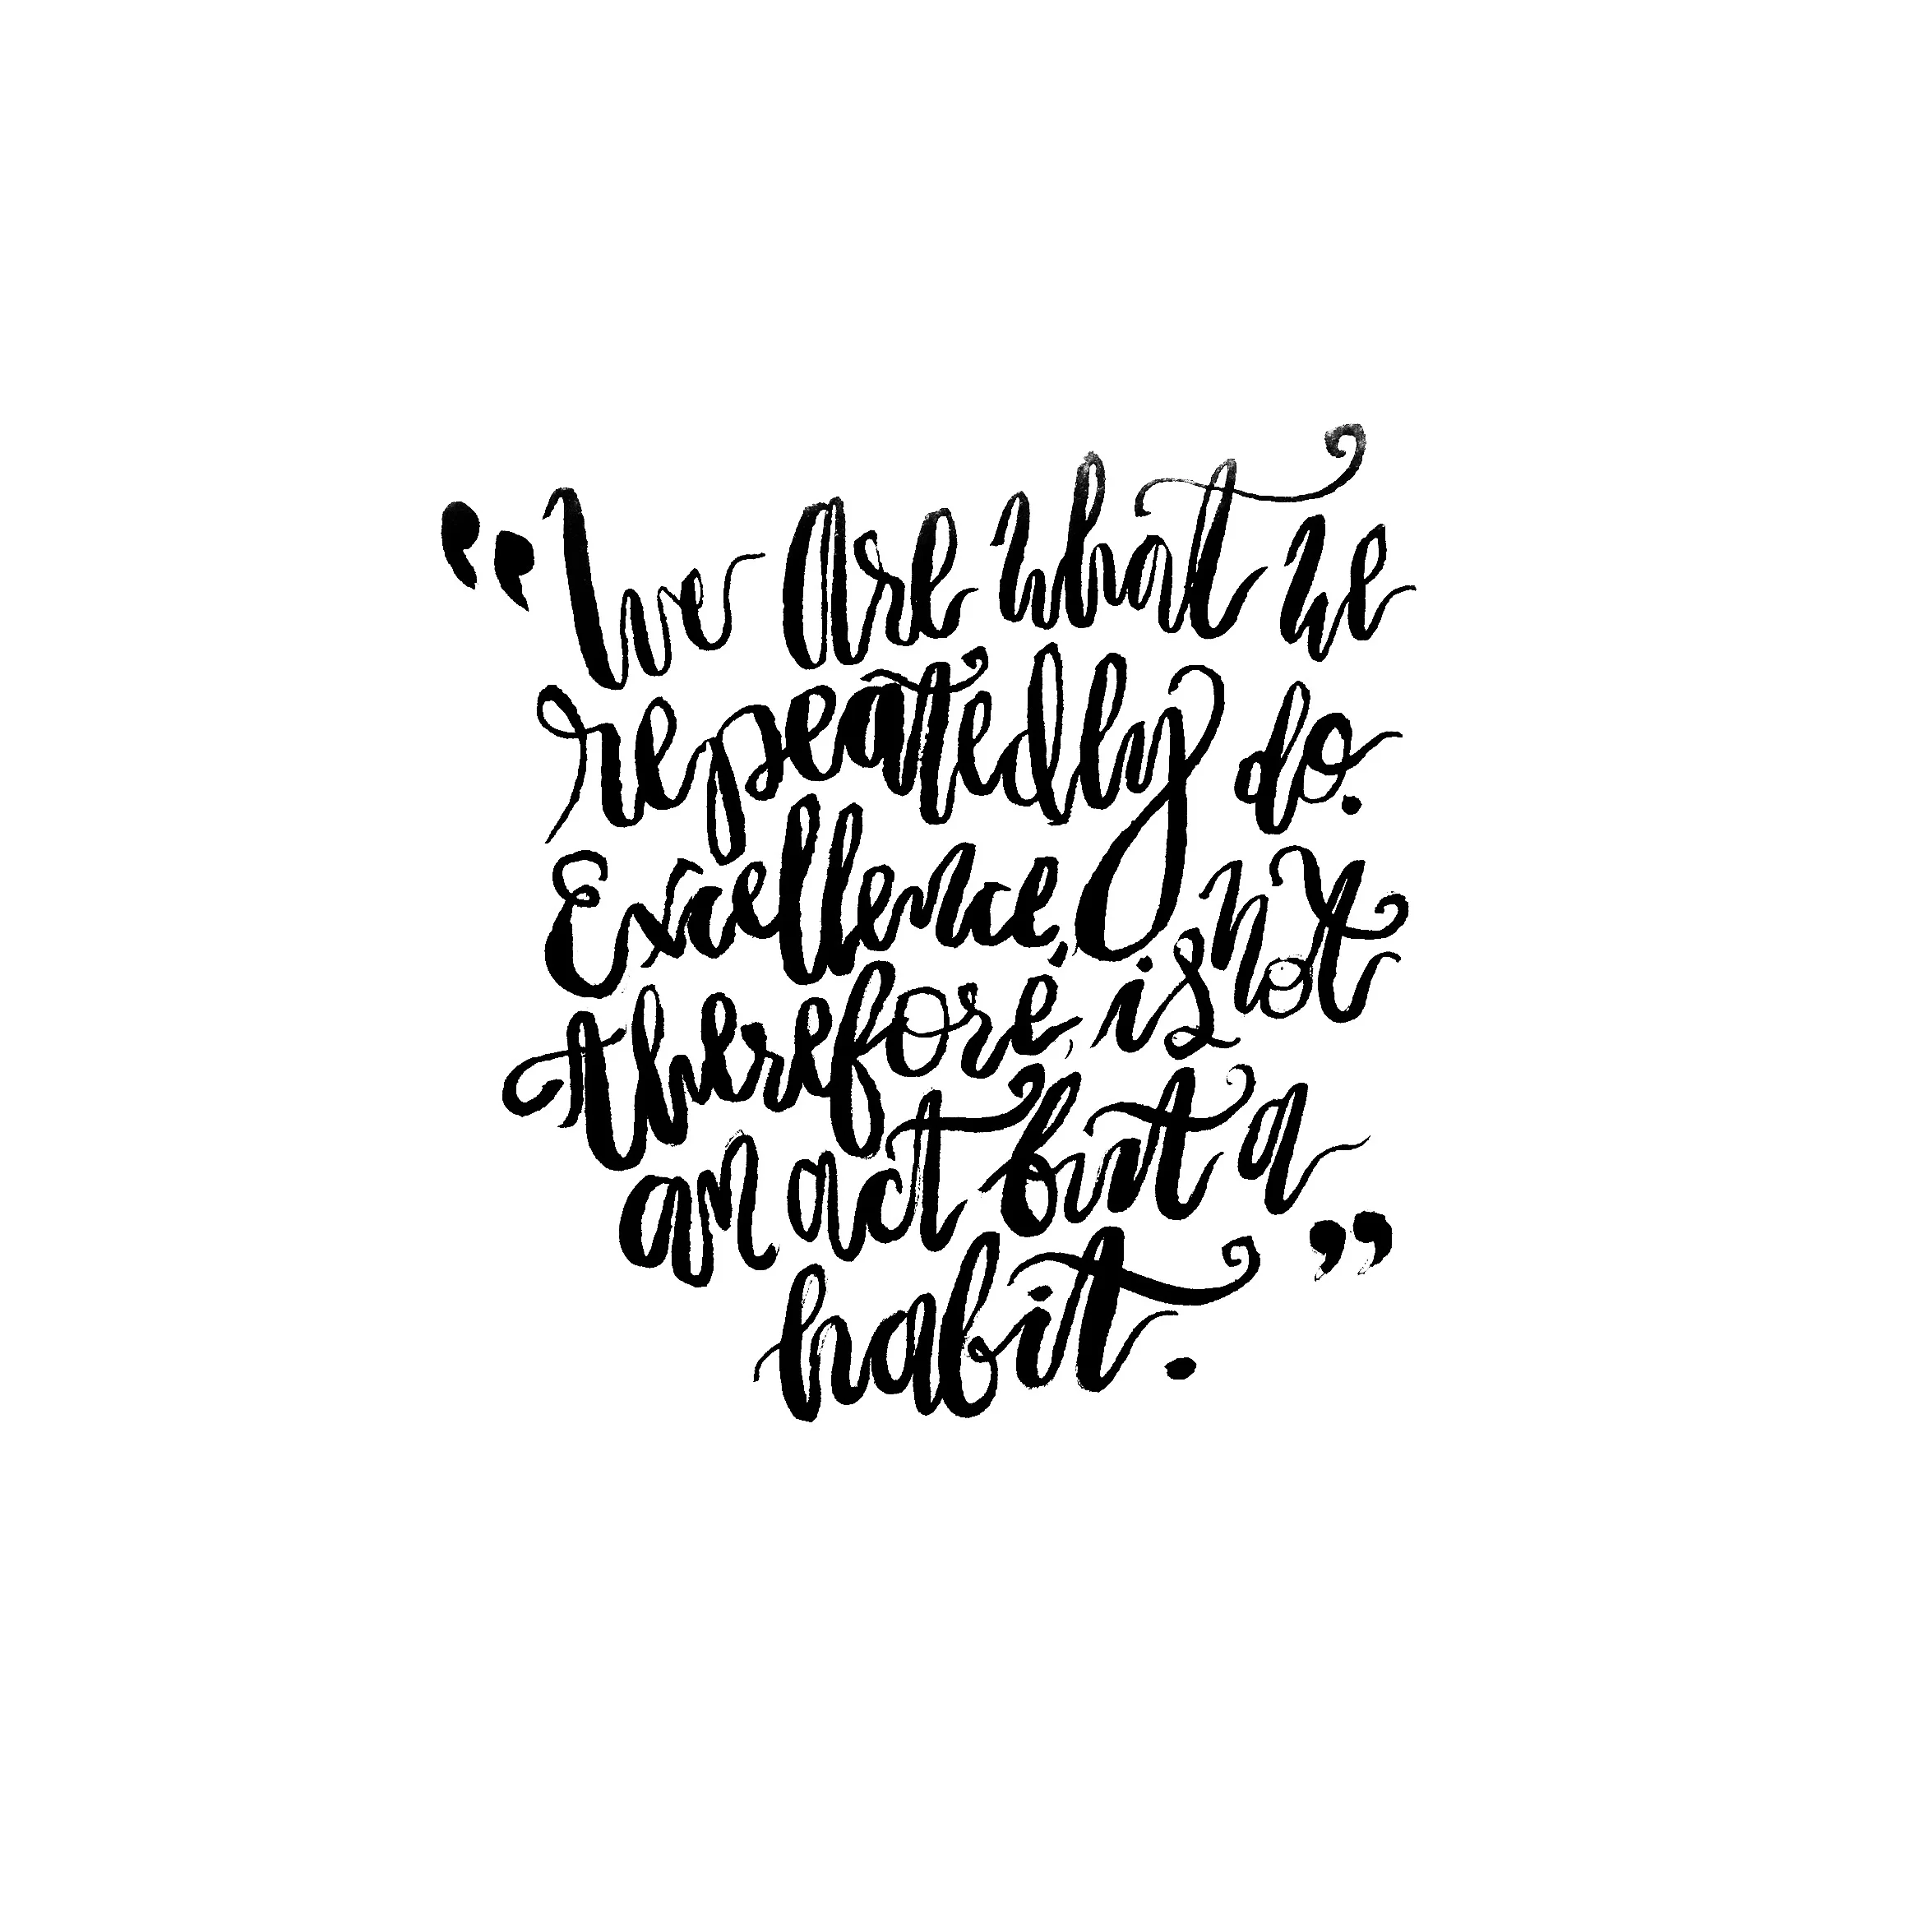 "We are what we
repeatedly do.
Excellence,
therefore, is not
an act but a
habit."